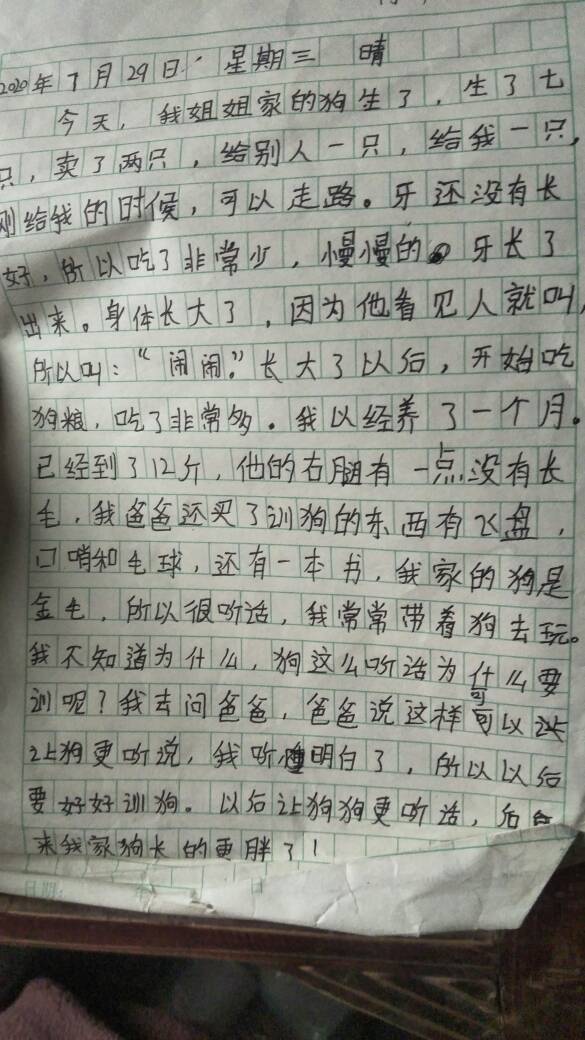 2020年7月29日 星期三 晴
今天，我姐姐家的狗生了，生了七
只，卖了两只，给别人一只，给我一只，
刚给我的时候，可以走路。牙还没有长
好，所以吃了非常少，慢慢的 牙长了
出来。身体长大了，因为他看见人就叫，
所以叫：“闹闹”。长大了以后，开始吃
狗粮，吃了非常多。我以经养了一个月。
已经到了12斤，他的右腿有一点没有长
毛，我爸爸还买了训狗的东西有飞盘，
口哨和毛球，还有一本书，我家的狗是
金毛，所以很听话，我常常带着狗去玩。
我不知道为什么，狗这么听话为什么要
训呢？我去问爸爸，爸爸说这样可以
让狗更听说，我听 明白了，所以以后
要好好训狗。以后让狗狗更听话，后
来我家狗长的更胖了！
日期：